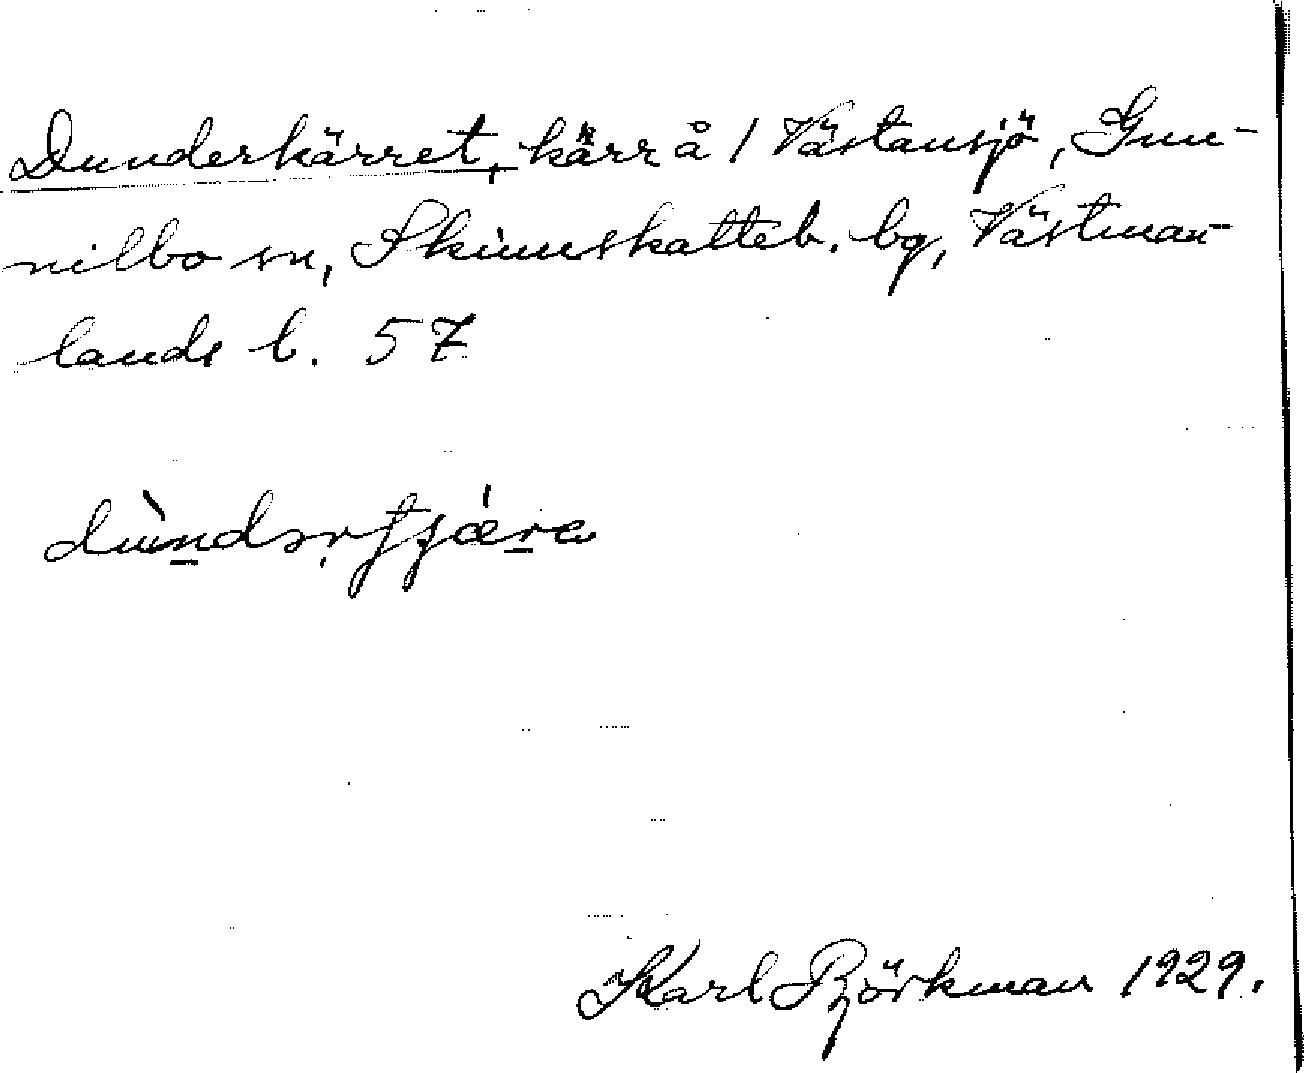 Dunderkärret, kärr å / Västansjö, Gun-
nilbo sn, Skinnskatteb. bg, Västman-
lands l. 57
Karl Björkman 1929.